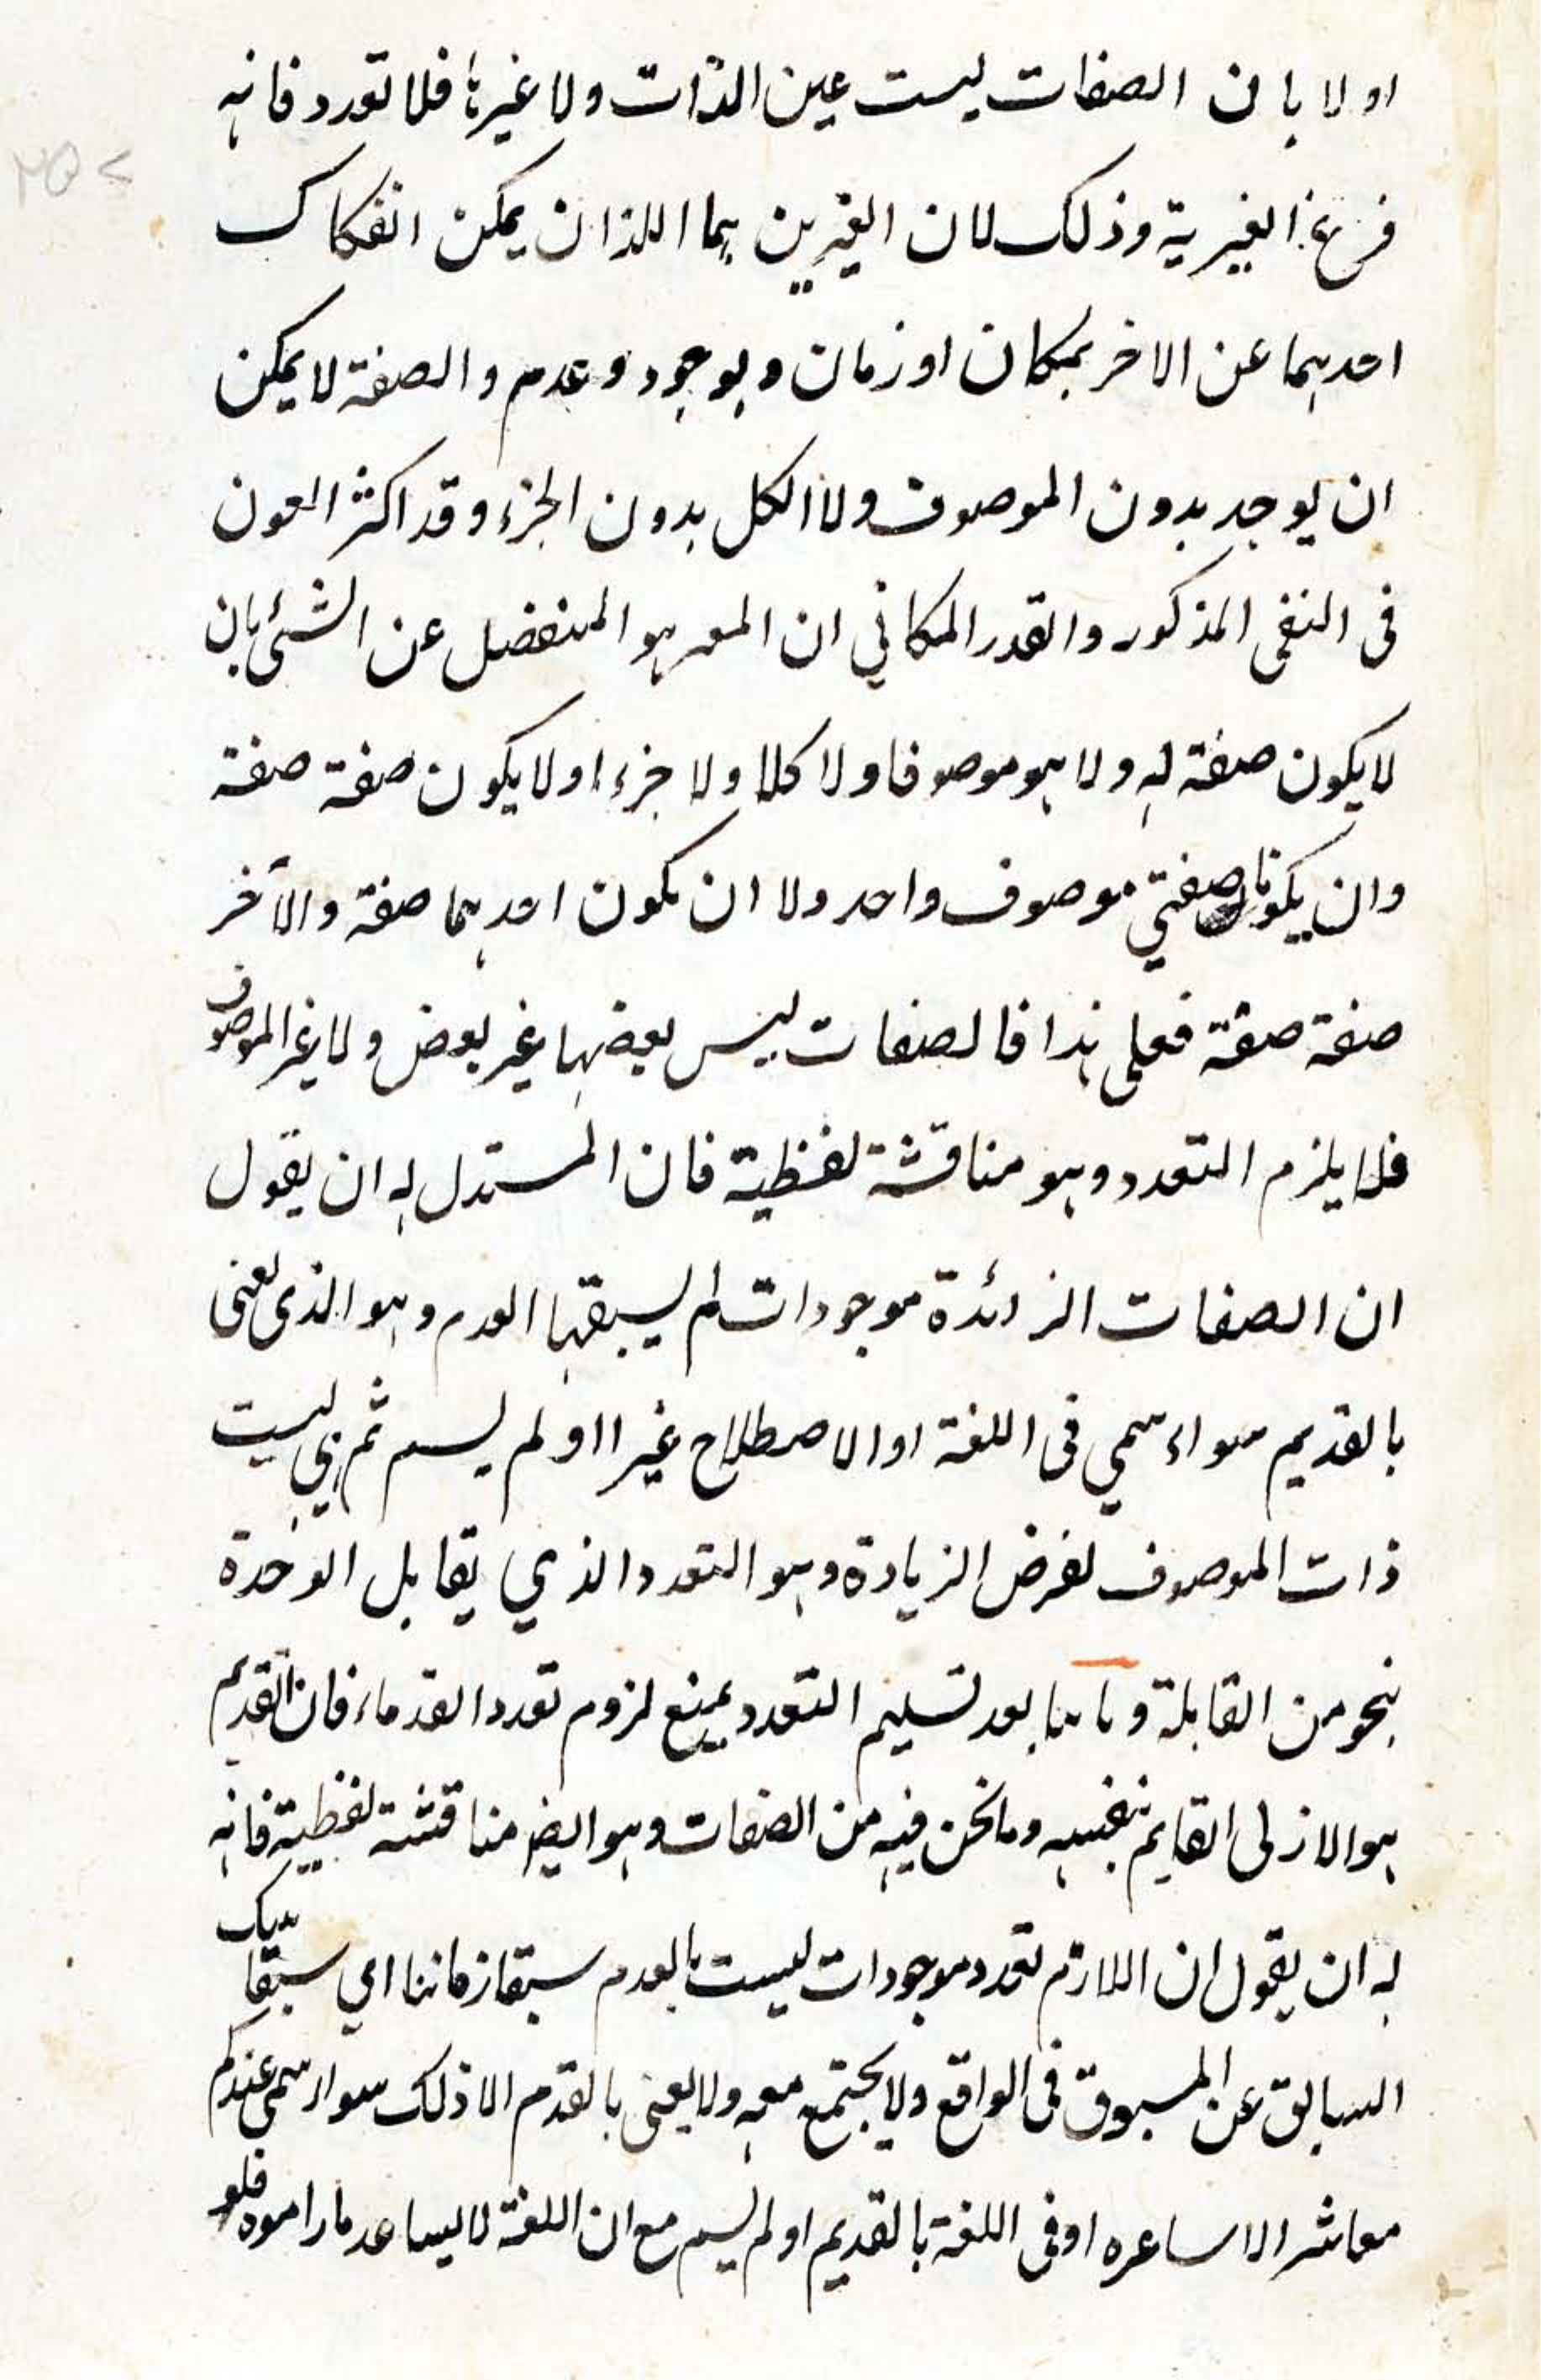 اولا بان الصفات ليست عين الذات ولا غيرها فلا تعدد فانه
فرع الغيرية وذلك لان الغيرين هما اللذان يمكن انفكاك
احدهما عن الاخر بمكان او زمان و بوجود و عدم و الصفة لا يمكن
ان يوجد بدون الموصوف ولا الكل بدون الجزء وقد اكثر العون
فى النفى المذكور والقدر المكافي ان المعر هو المنفصل عن الشئ بان
لا يكون صفة له ولا هو موصوفا ولا كلا ولا جزء او لا يكون صفة صفة
وان يكونا صفتي موصوف واحد ولا ان يكون احدهما صفة والآخر
صفة صفة فعلى هذا فالصفات ليس بعضها غير بعض ولا غير الموصوف
فلا يلزم التعدد وهو مناقشة لفظية فان المستدل له ان يقول
ان الصفات الزائدة موجودات لم يسبقها العدم وهو الذى يعنى
بالقديم سواء سمي فى اللغة او الاصطلاح غيرا او لم يسم ثم هي ليست
ذات الموصوف لفرض الزيادة وهو التعدد الذي يقابل الوحدة
بنحو من القابلة و ثانيا بعد تسليم التعدد بمنع لزوم تعدد القدماء فان القديم
هو الازلى القايم بنفسه وما نحن فيه من الصفات وهو ايضا مناقشة لفظية فانه
له ان يقول ان اللازم تعدد موجودات ليست بالعدم سبقا زمانيا اي سبقا ينفك
السابق عن المسبوق فى الواقع ولا يجتمع معه ولا يعنى بالقدم الا ذلك سواء سمى عندكم
معاشر الاساعره او فى اللغة بالقديم او لم يسم مع ان اللغة لا يساعد ما راموه فلو